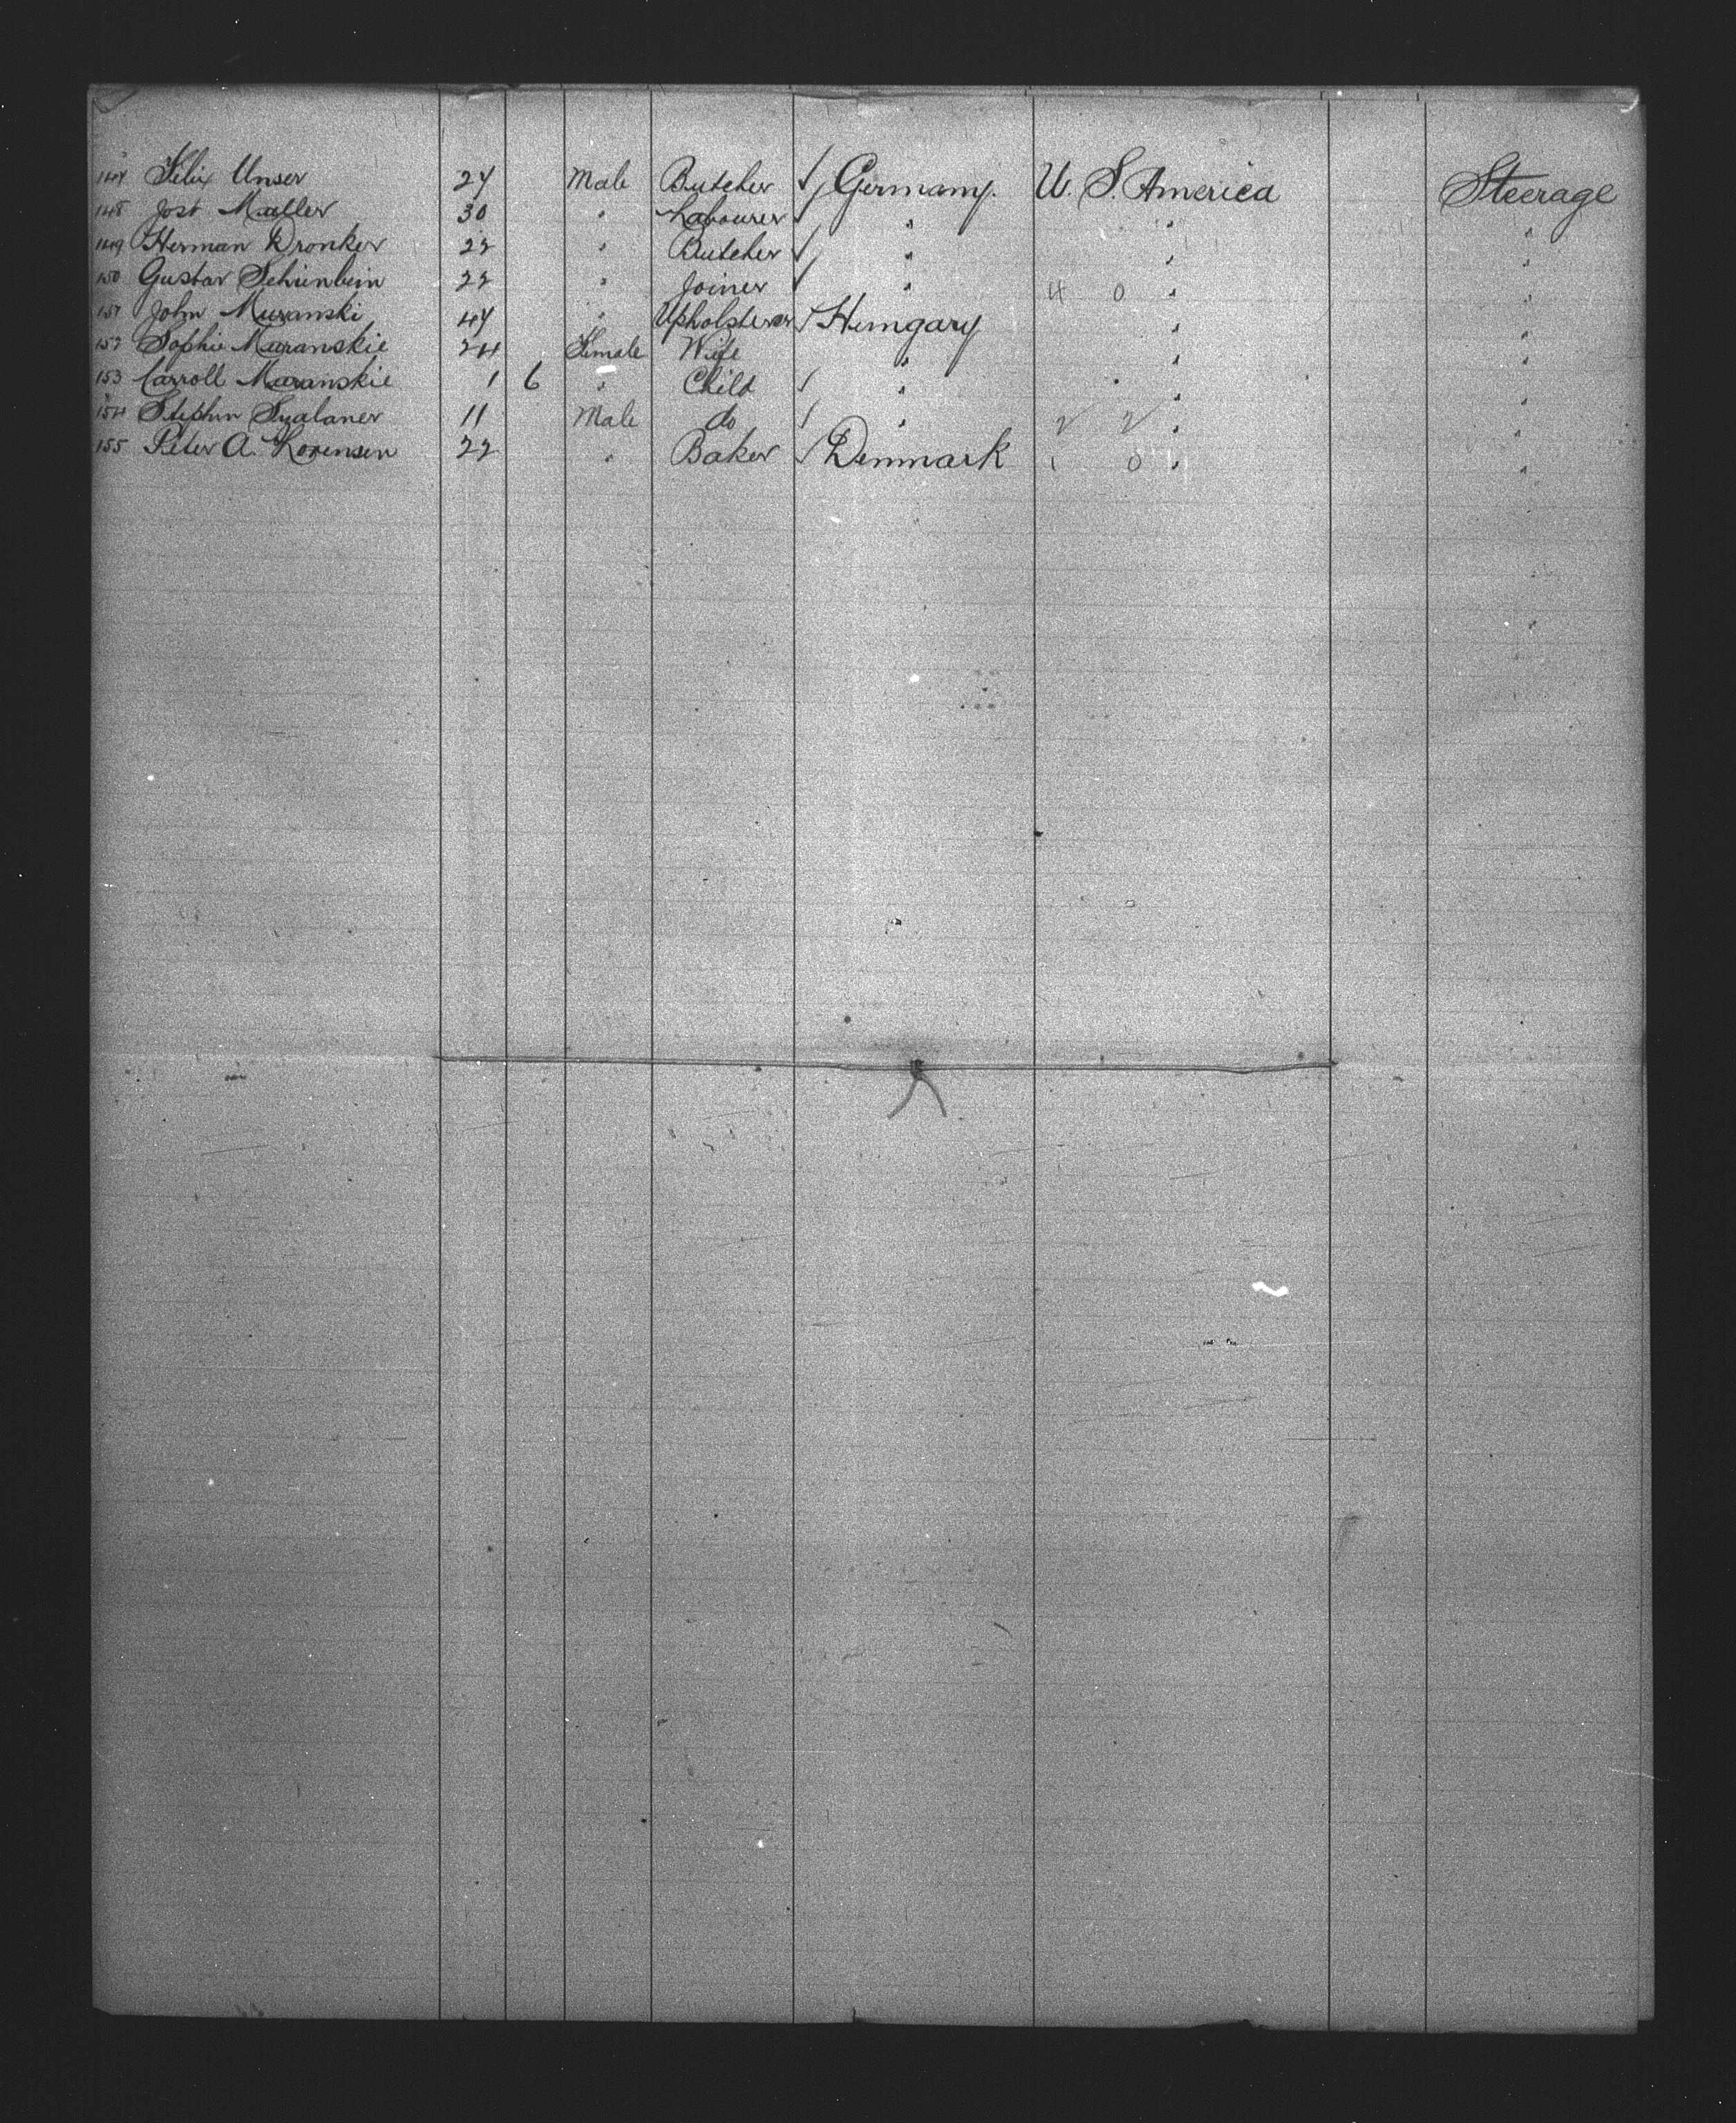 147 Felix Unser 24 Male Butcher ✓ Germany. U. S. America Steerage
148 Jost Muller 30 " Labourer ✓ " " "
149 Herman Dronker 22 " Butcher ✓ " " "
150 Gustav Schinbein 22 " Joiner ✓ " 4 0 " "
151 John Muranski 44 " Upholsterer ✓ Hungary " "
152 Sophie Muranskie 24 Female Wife " " "
153 Carroll Muranskie 1 6 " Child ✓ " " "
154 Stephen 11 Male do ✓ " 2 2 " "
155 Peter A. Lorensen 22 " Baker ✓ Denmark 1 0 " "